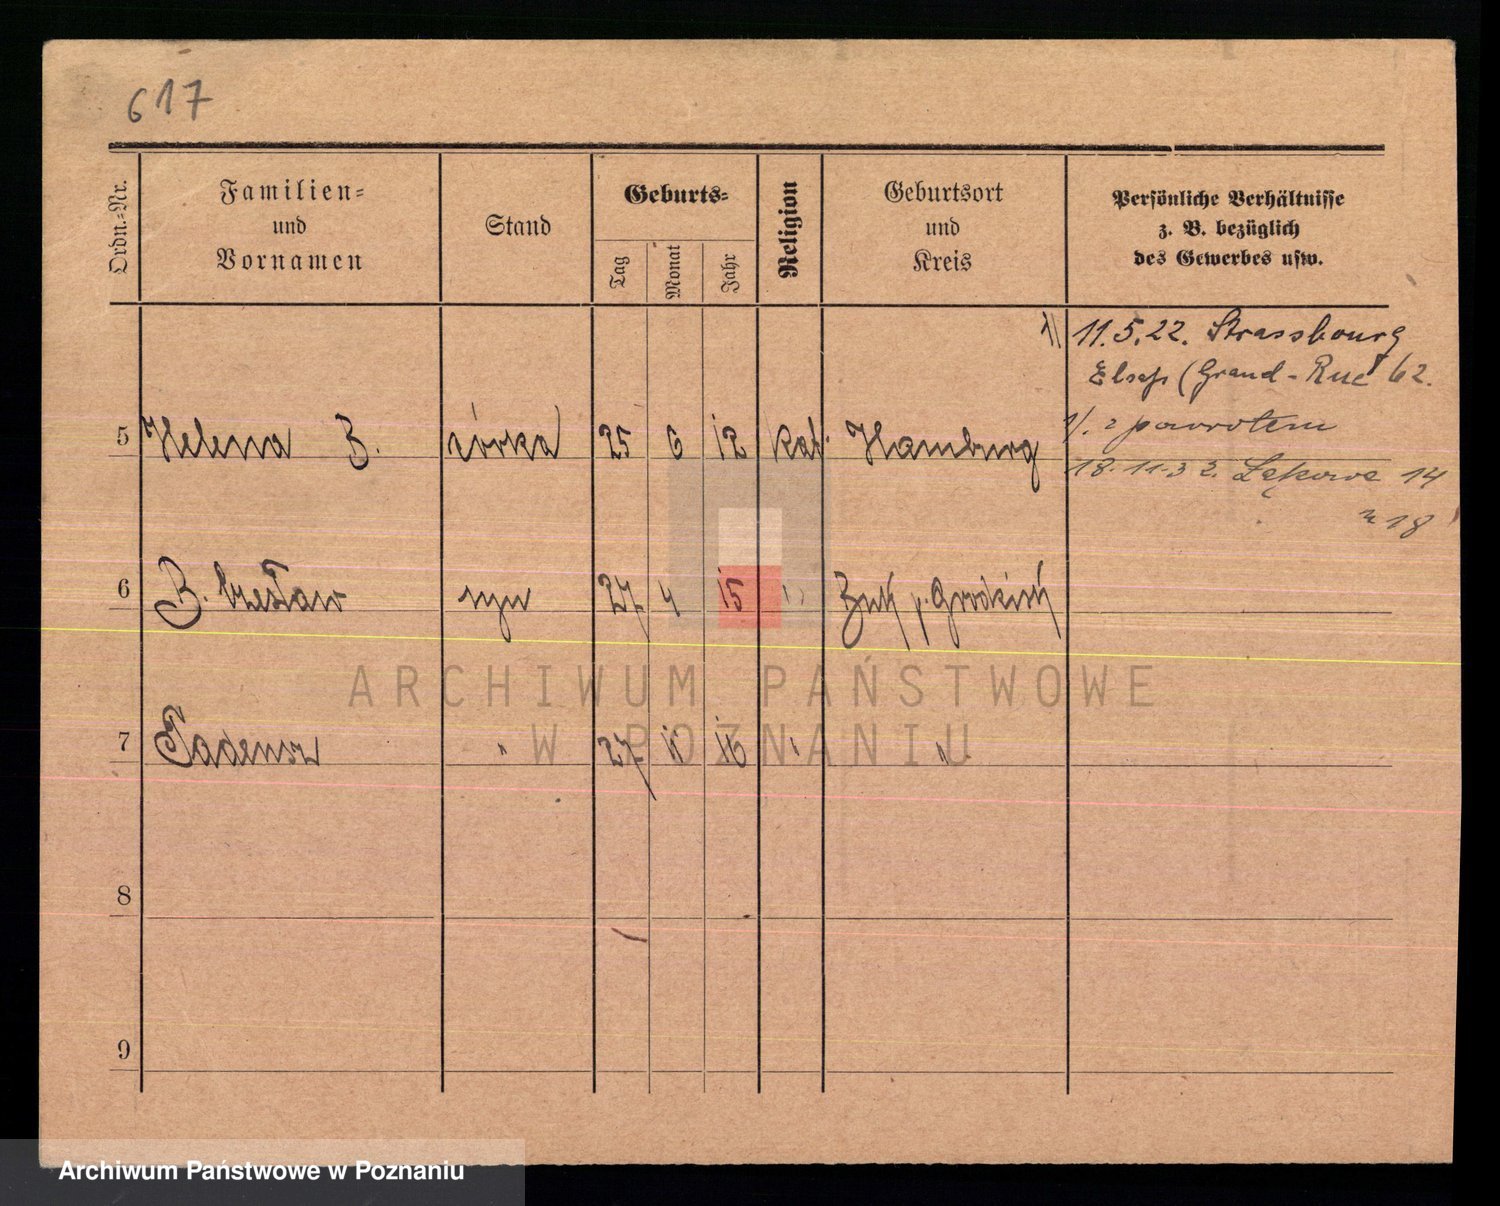 617
Ordn.-Nr.
Familien-
und
Vornamen
Stand
Geburts-
Tag
Monat
Jahr
Religion
Geburtsort
und
Kreis
Persönliche Verhältnisse
z. B. bezüglich
des Gewerbes usw.
11.5.22. Strassbourg
(Grand-Rue 62.
z powrotem
5 Helena B. córka 25 6 12 kat. Hamburg
18.11.32. Łąkowa 14
18
6 B. Czesław syn 27 4 15 " Buk p. Grodzisk
7 Tadeusz " 27 11 16 " "
8
9
ARCHIWUM PAŃSTWOWE
W POZNANIU
Archiwum Państwowe w Poznaniu